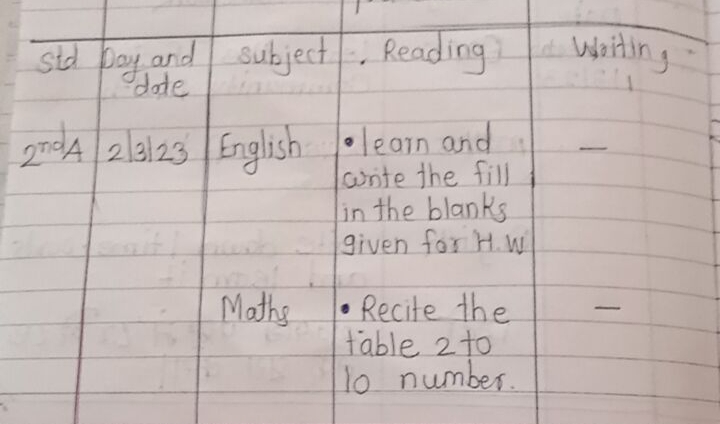 Std Day and subject . Reading Writing
date
2nd A 2/3/23 English • learn and —
write the fill
in the blanks
given for H.W
Maths • Recite the —
table 2 to
10 number.